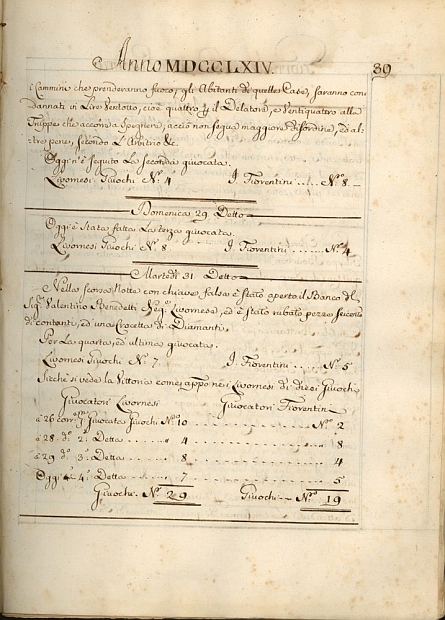 Anno MDCCLXIV. 39
i Cammini che prenderanno fuoco, gli Abitanti di quelle Case, saranno con-
dannati in Lire Ventotto, cioè quattro per il Delatore, e Ventiquattro alle
Truppe che accorre a spegnere, acciò non segua maggiore disordine, ed al-
tre pene, secondo l'Arbitrio &c.
Oggi n'è seguita la seconda giuocata.
Livornesi Giuochi Nº 4 I Fiorentini ..... Nº 8 -
Domenica 29 Detto
Oggi è stata fatta la terza giuocata.
Livornesi Giuochi Nº 8 I Fiorentini ..... Nº 4
Martedì 31 Detto
Nella scorsa Notte con chiave falsa è stato aperto il Banco del
Sigr Valentino Benedetti Livornese, ed è stato rubato pezze
di contanti, ed una Crocetta di Diamanti.
Per la quarta, ed ultima giuocata.
Livornesi Giuochi Nº 7 I Fiorentini ... Nº 5
Sicchè si vede la Vittoria come appo ne i Livornesi di dieci Giuochi
Giuocatori Livornesi Giuocatori Fiorentini
a 26 Giuocata Giuochi Nº 10 ..... Nº 2
a 28 dº 2ª Detta ..... 4 ..... 8
a 29 dº 3ª Detta ..... 8 ..... 4
Oggi 4ª Detta ..... 7 ..... 5
Giuochi Nº 29 Giuochi Nº 19